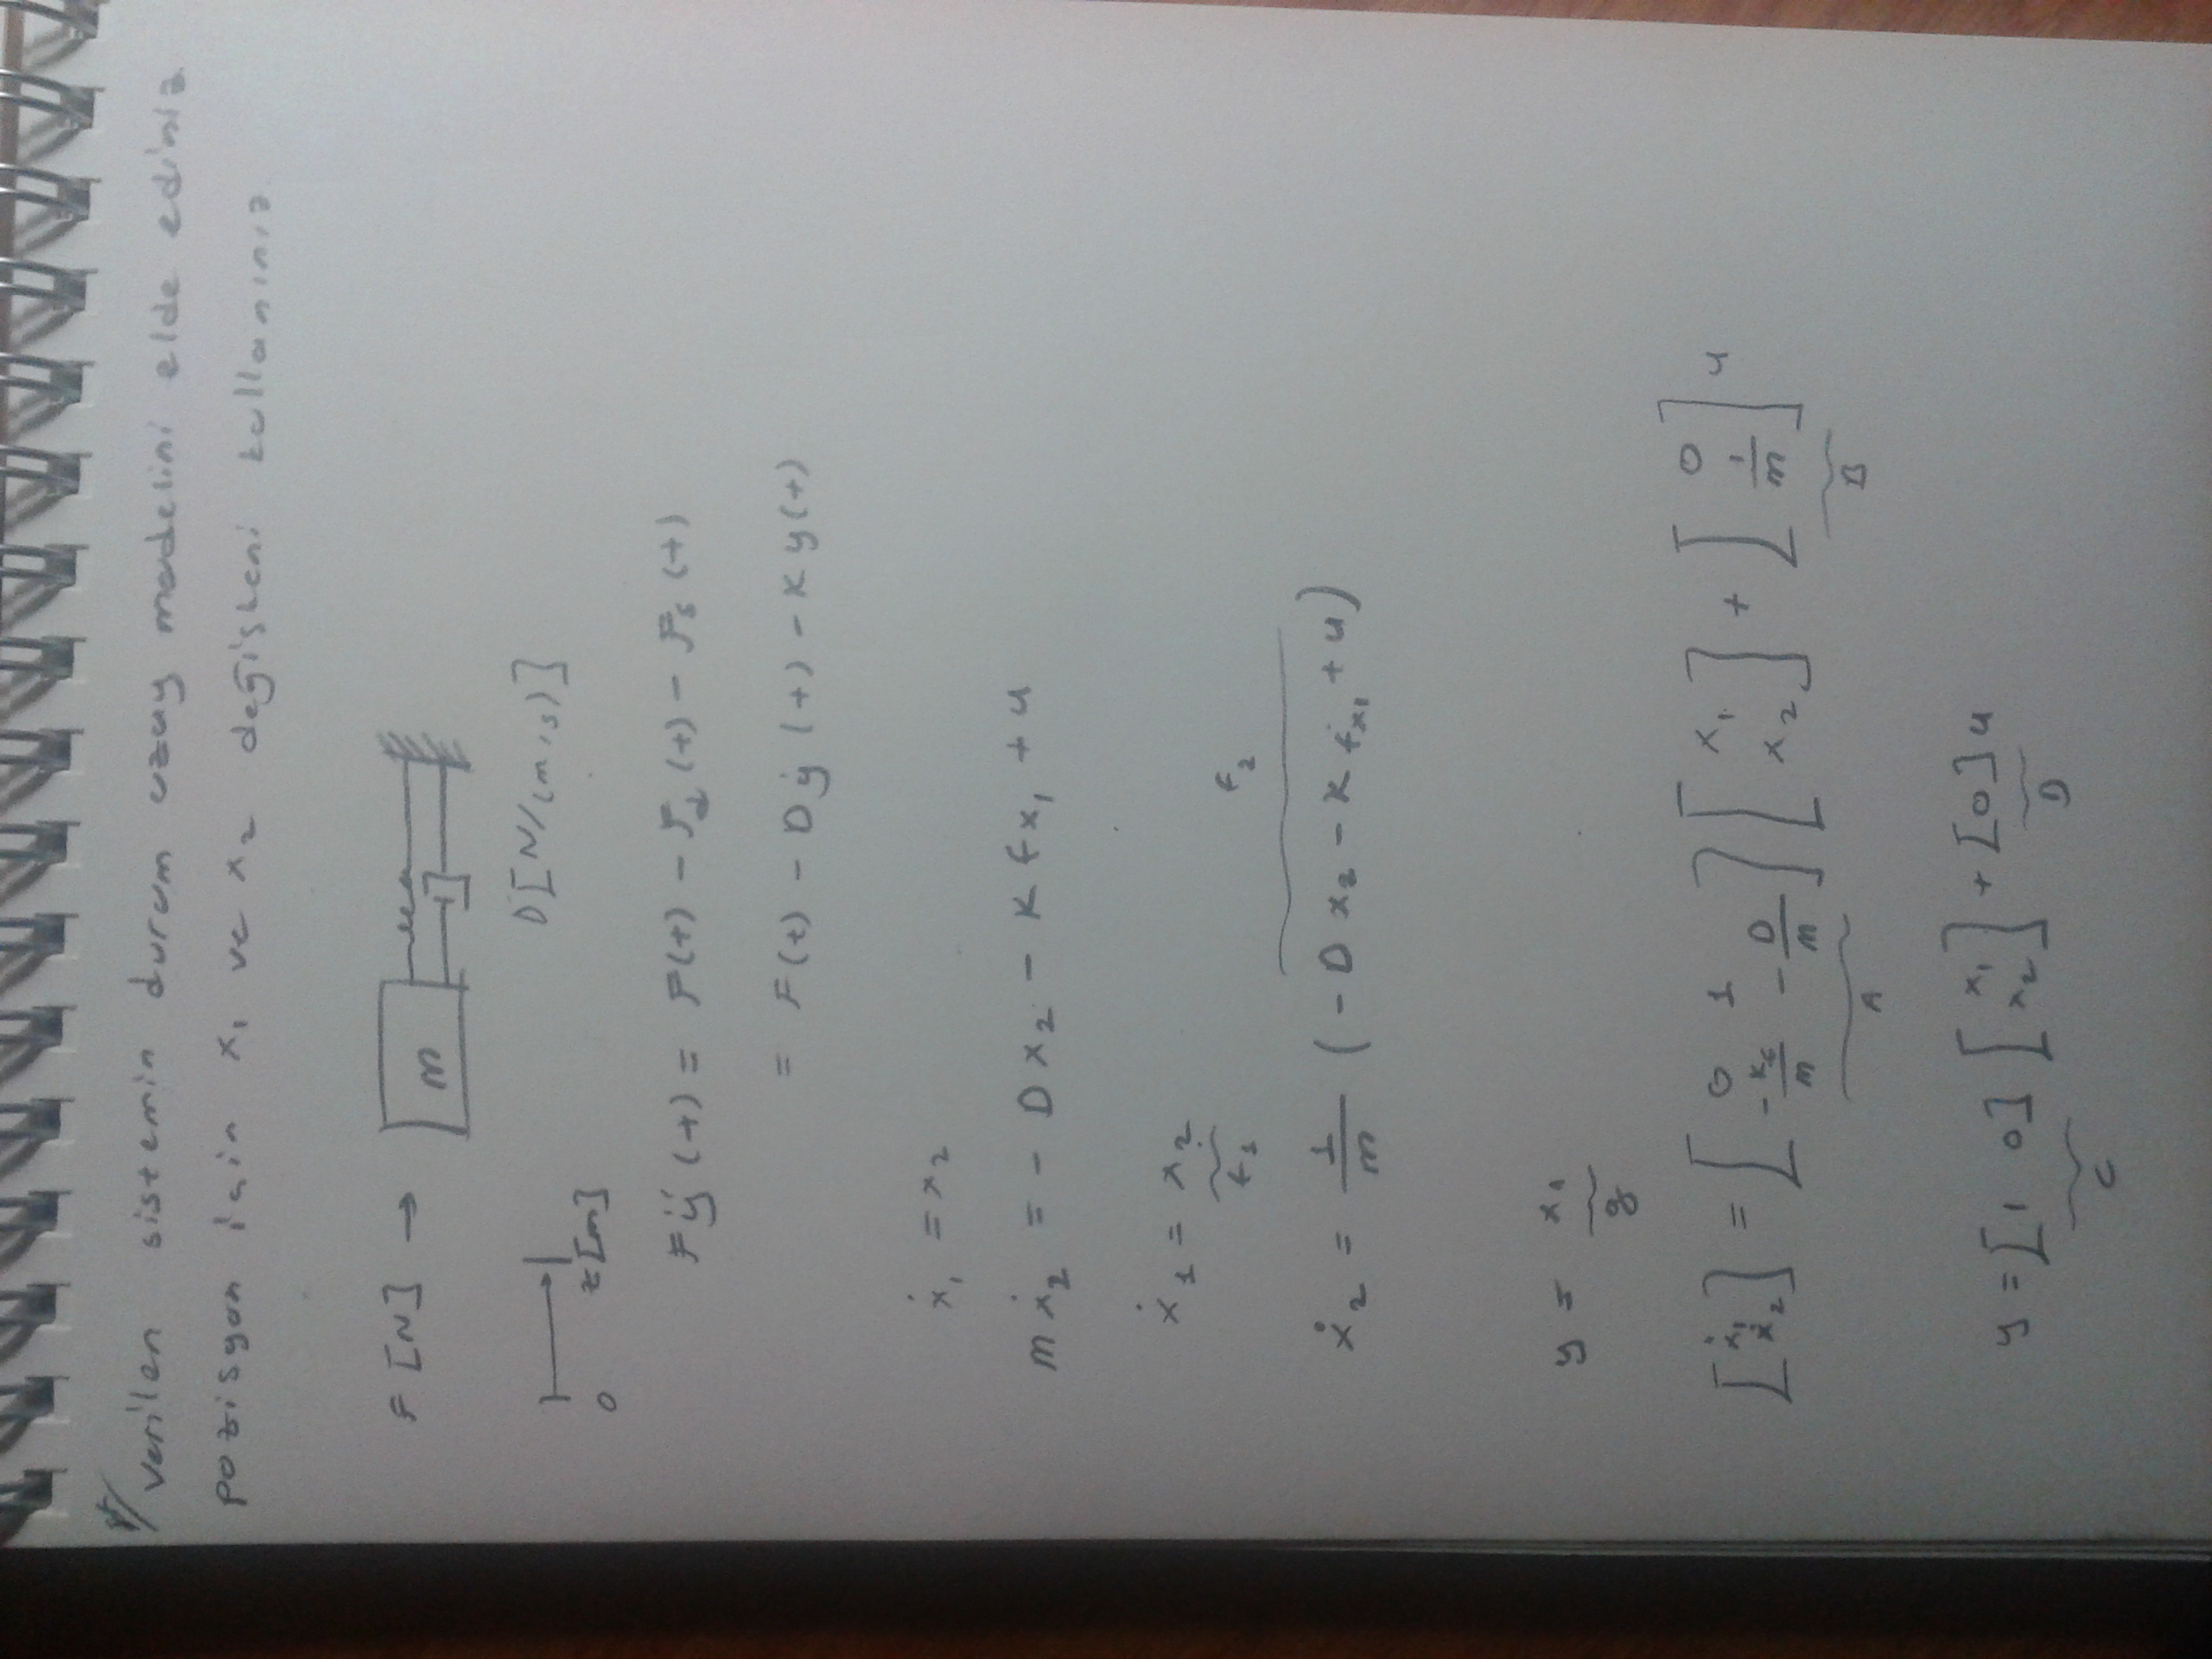 verilen sistemin durum uzay modelini elde ediniz
pozisyon için x₁ ve x₂ değişkeni kullanınız
F [N] →
m
D[N/(m/s)]
0 z[m]
Fÿ(t) = F(t) - F_d(t) - F_s(t)
= F(t) - Dẏ(t) - Ky(t)
ẋ₁ = x₂
mẋ₂ = - Dx₂ - K fx₁ + u
ẋ₁ = x₂
f₁
f₂
ẋ₂ = 1/m (-D x₂ - K fx₁ + u)
y = x₁
g
[ẋ₁ ẋ₂] = [0 1 -K_f/m -D/m] [x₁ x₂] + [0 1/m] u
A B
y = [1 0] [x₁ x₂] + [0] u
C D